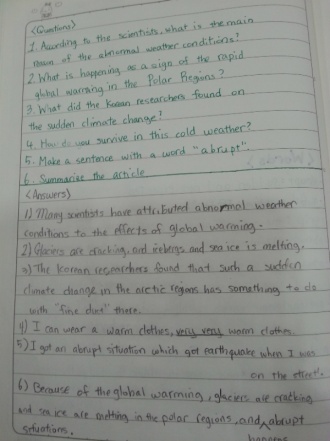 <Questions>
1. According to the scientists, what is the main
reason of the abnormal weather conditions?
2. What is happening as a sign of the rapid
global warming in the Polar Regions?
3. What did the Korean researchers found on
the sudden climate change?
4. How do you survive in this cold weather?
5. Make a sentence with a word "abrupt".
6. Summarise the article
<Answers>
1) Many scientists have attributed abnormal weather
conditions to the effects of global warming.
2) Glaciers are cracking, and icebergs and sea ice is melting.
3) The Korean researchers found that such a sudden
climate change in the arctic regions has something to do
with "fine dust" there.
4) I can wear a warm clothes, very very warm clothes.
5) I got an abrupt situation which got earthquake when I was
on the
6) Because of the global warming, glaciers are cracking
and sea ice are melting in the polar regions, and abrupt
situations. happens